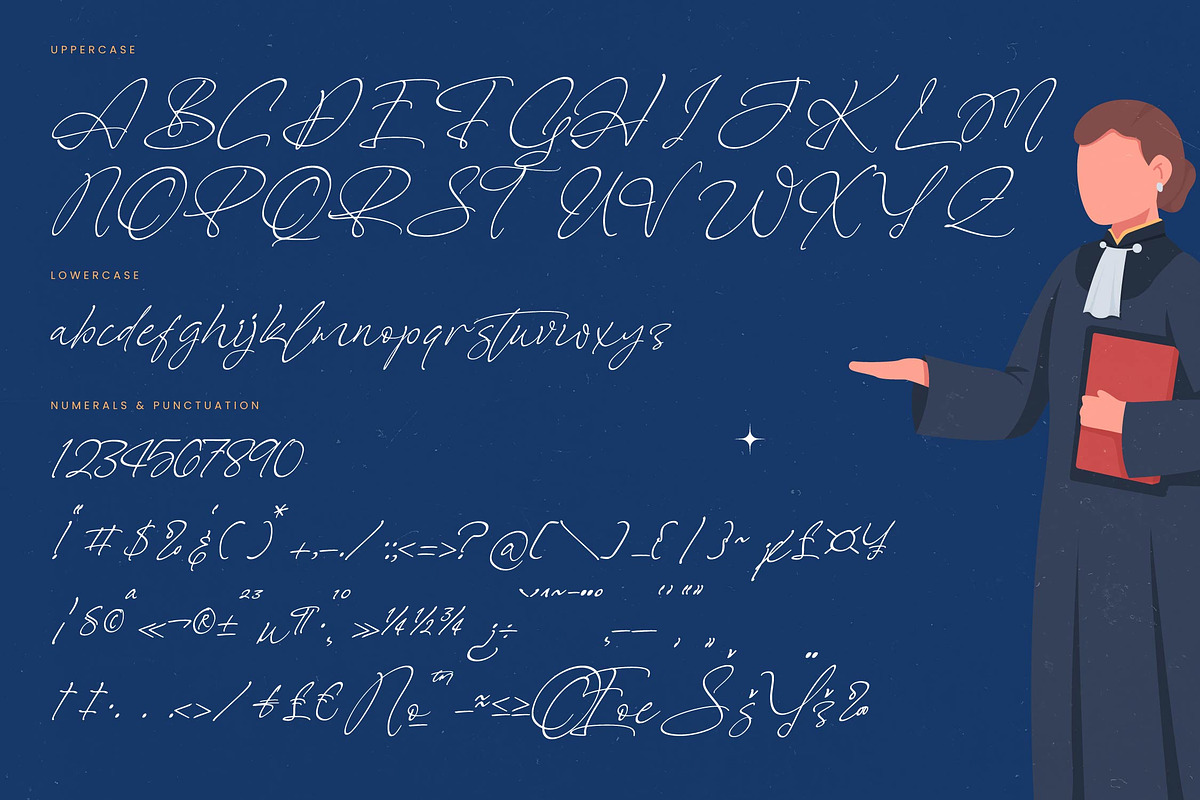 UPPERCASE
A B C D E F G H I J K L M
N O P Q R S T U V W X Y Z
LOWERCASE
abcdefghijklmnopqrstuvwxyz
NUMERALS & PUNCTUATION
1234567890
!"#$%&'()*+,-./:;<=>?@[\]_{|}~¢£¤¥
¦§©ª«¬®±²³µ¶·¸¹º»¼½¾¿÷
†‡•‹›⁄₣₤€№™−≈≤≥ŒœŠšŸž‰